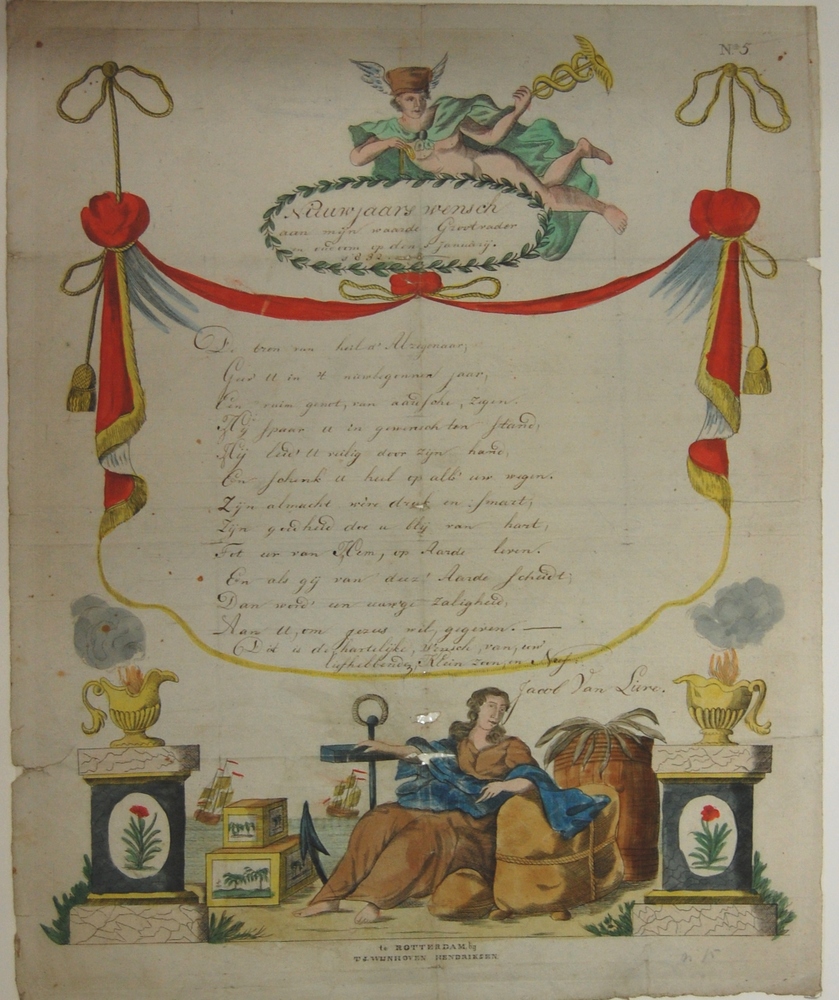 No 5
Nieuwjaars wensch
aan mijn waarde Grootvader
en oudoom op den 1 January.
De bron van heil d' Alregenaar,
Geev U in 't nieuwbegonnen jaar,
Een ruim genot, van aardsche, Zegen.
Hij spaar U in gewenschten stand,
Hij leid' U veilig door zijn hand,
En schenk U heil op all' uw wegen.
Zijn almacht were druk en smart,
Zijn goedheid doe u blij van hart,
Tot eer van Hem, op Aarde leven.
En als gij van deez' Aarde scheidt,
Dan word' een eeuwge zaligheid,
Aan U, om jezus wil, gegeven.
Dit is de hartelijke, Wensch, van, uw
liefhebbenden, Klein zoon, en Neef.
Jacob Van Liere.
te ROTTERDAM, bij
T. C. WIJNHOVEN HENDRIKSEN